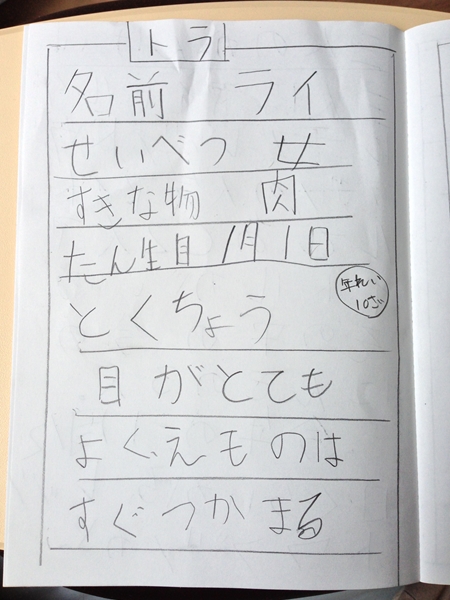 トラ
名前 ライ
せいべつ 女
すきな物 肉
たん生目 1月1日
年れい
10才
とくちょう
目がとても
よく、えものは
すぐつかまる